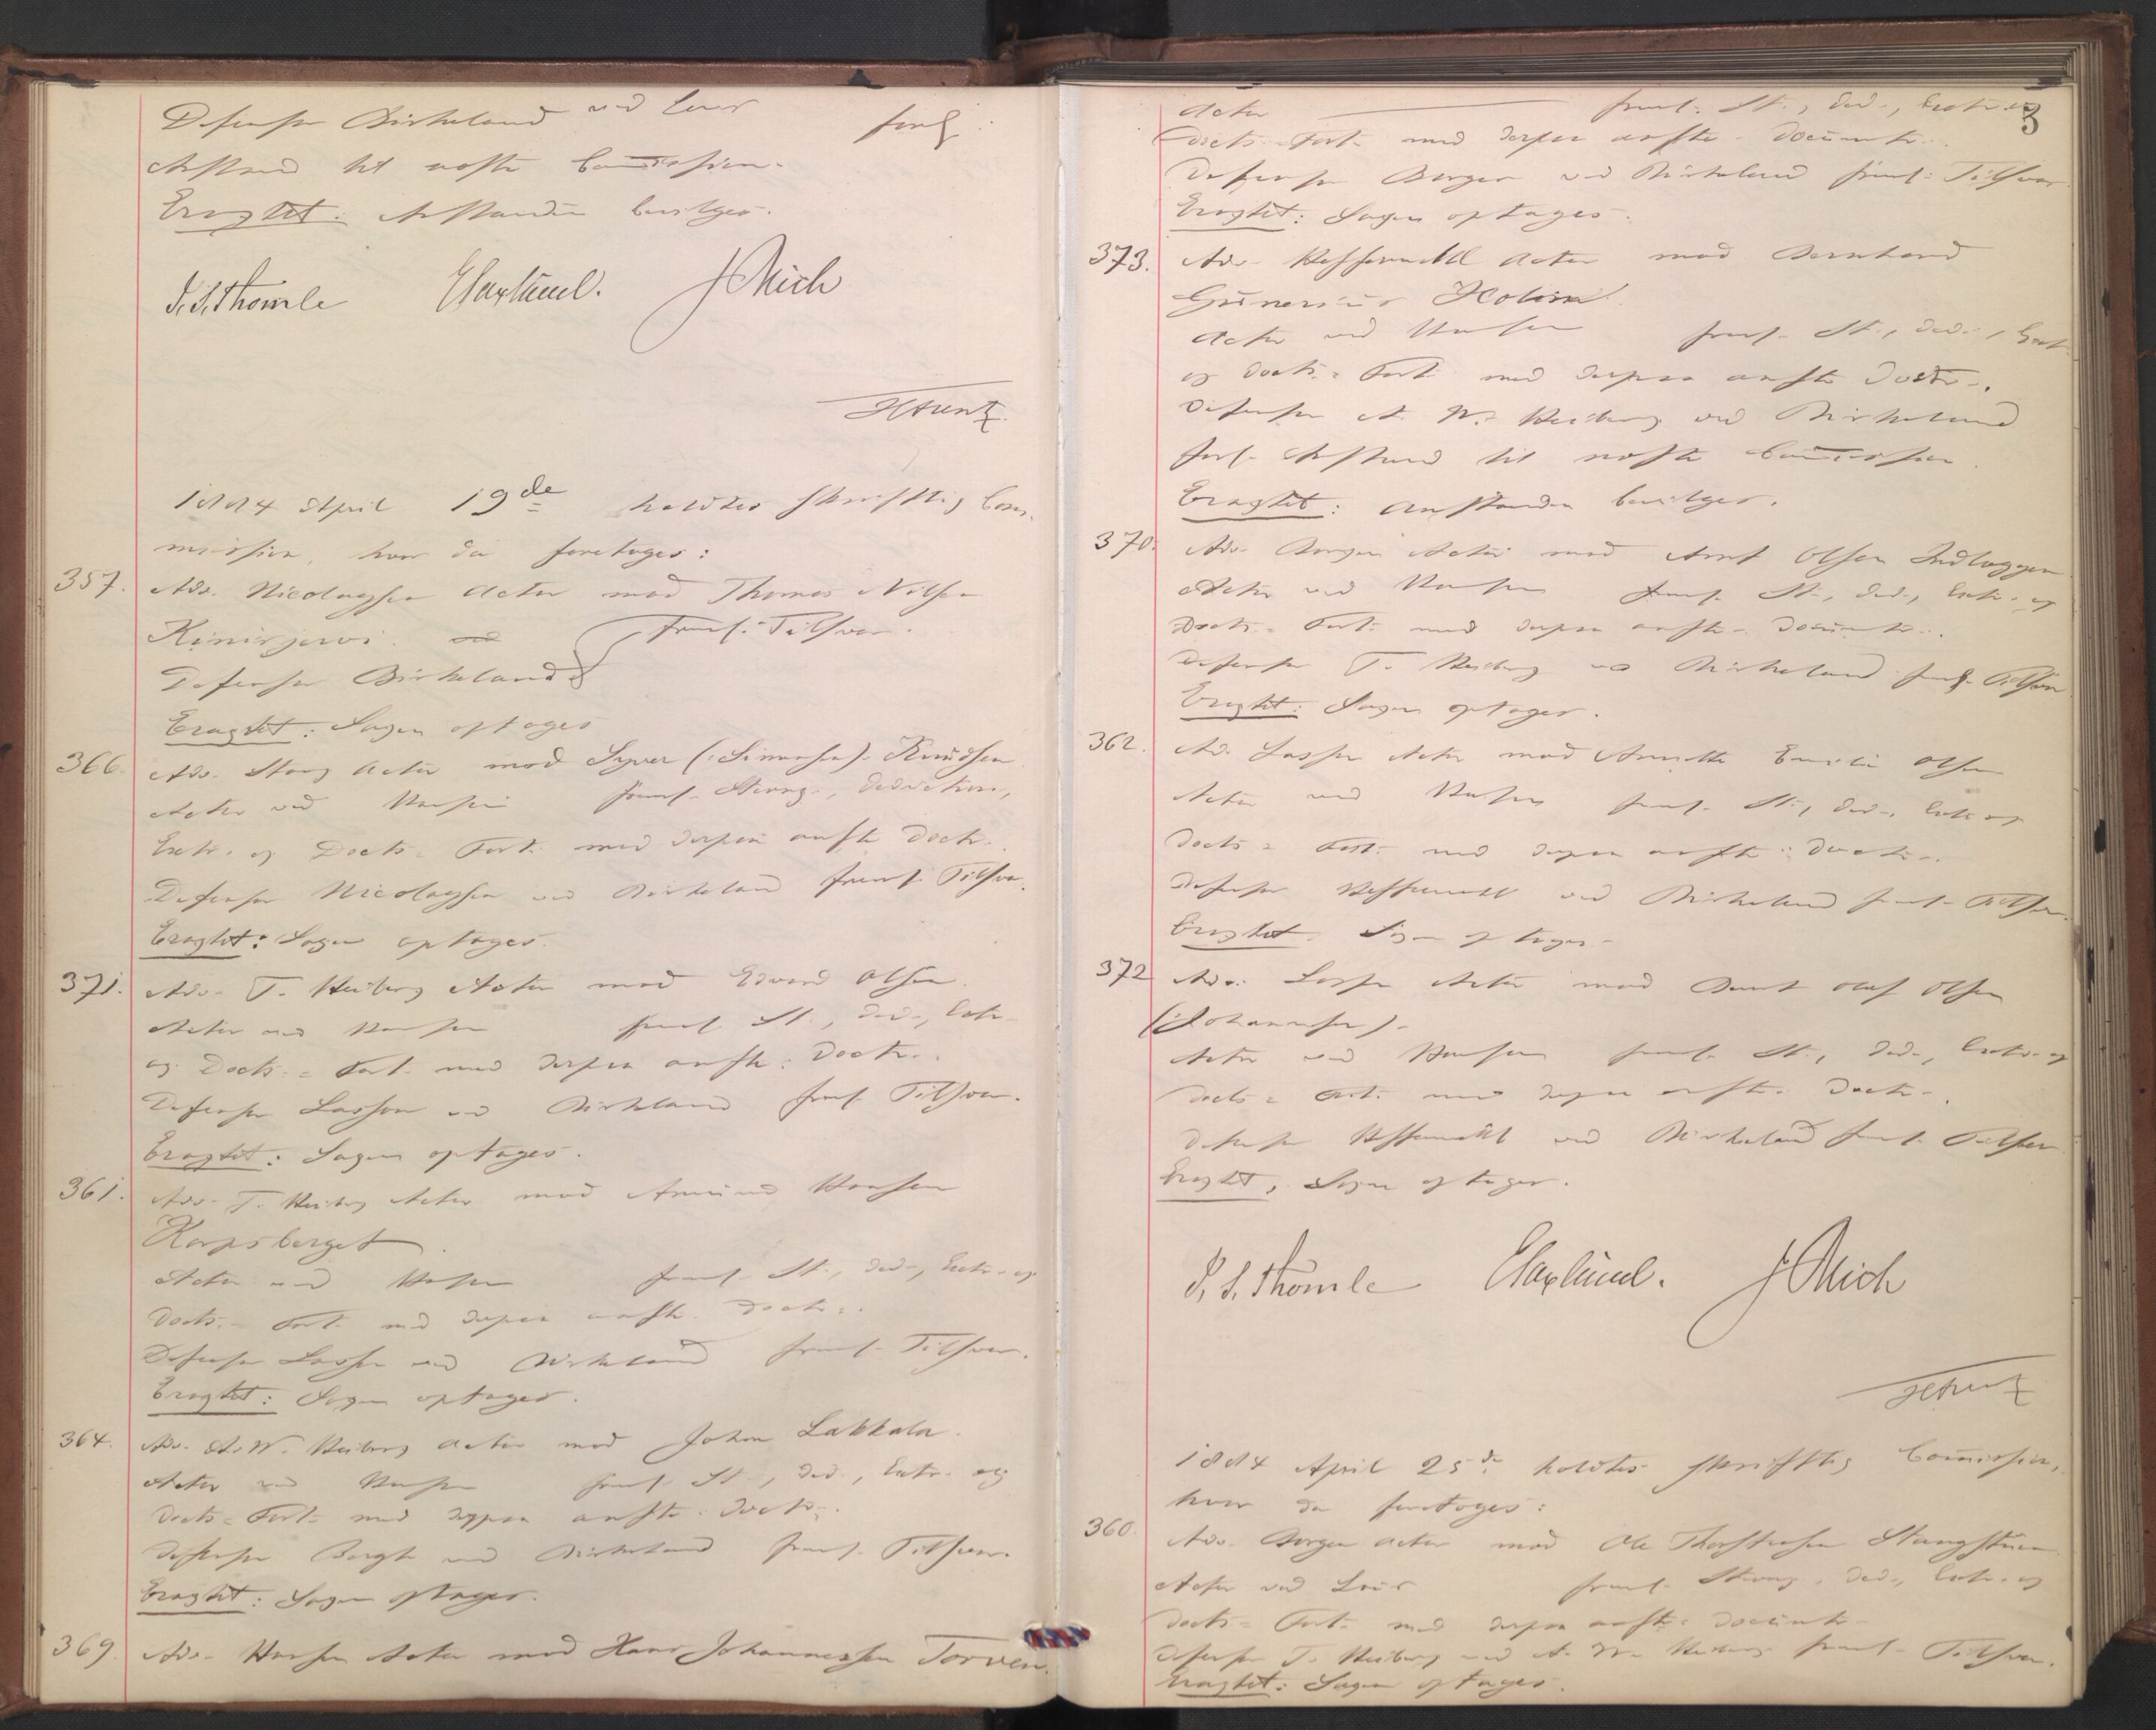 Defensor Birkeland ved Lous forl.
Anstand til næste Commission.
Eragtet: Anstanden bevilges.
I. S. Thomle E Haxlund. J Mich
1884 April 19de holdtes skriftlig Com-
mission, hvor da foretoges:
357. Adv. Nicolaysen Actor mod Thomas Nilsen
Kinisjervi. freml. Tilsvar.
Defensor Birkeland
Eragtet: Sagen optages
366. Adv. Stang Actor mod Syver (Simensen) Knudsen
Actor ved Hansen freml. Stevng., Deduction,
Extr. og Docts. Fort. med derpaa anfte Doctr.
Defensor Nicolaysen ved Birkeland freml. Tilsvar.
Eragtet: Sagen optages.
371. Adv. T. Heiberg Actor mod Edvard Olsen.
Actor ved Hansen freml. St., Ded., Extr.
og Docts. = Fort. med derpaa anfte. Doctr.
Defensor Lasson ved Birkeland freml. Tilsvar.
Eragtet: Sagen optages.
361. Adv. T. Heiberg Actor mod Amund Hansen
Korpsberget
Actor ved Hansen freml. St., Ded., Extr. og
Docts. = Fort. med derpaa anfte. Doctr.
Defensor Lasson ved Birkeland freml. Tilsvar.
Eragtet: Sagen optages.
364. Adv. A. W. Heiberg Actor mod Johan Lakkala.
Actor ved Hansen freml. St., Ded., Extr. og
Docts = Fort. med derpaa anfte. Doctr.
Defensor Bergh ved Birkeland freml. Tilsvar.
Eragtet: Sagen optages.
369. Adv. Hansen Actor mod Hans Johannessen Torven.
3
Actor freml. St., Ded., Extr. og
Docts. Fort. med derpaa anfte. Documtr.
Defensor Berger ved Birkeland freml. Tilsvar
Eragtet: Sagen optages.
373. Adv. Actor mod Bernhard
Gunerius Holm.
Actor ved Hansen freml. St., Ded., Extr.
og Docts. = Fort. med derpaa anfte Doctr.
Defensor A. W. Heiberg ved Birkeland
forl. Anstand til næste Commission.
Eragtet: Anstanden bevilges.
370. Adv. Actor mod Arnt Olsen Indlæggen
Actor ved Hansen freml. St., Ded., Extr. og
Docts. = Fort. med derpaa anfte. Documtr.
Defensor T. Heiberg ved Birkeland freml. Tilsvar
Eragtet: Sagen optages.
362. Ad. Lasson Actor mod Annette Emilie Olsen
Actor ved Hansen freml. St., Ded., Extr. og
Docts = Fort. med derpaa anfte. Doctr.
Defensor ved Birkeland freml. Tilsvar.
Eragtet: Sagen optages.
372 Adv. Lasson Actor mod Bernt Olaf Olsen
(Johannesen).
Actor ved Hansen freml. St., Ded., Extr. og
Docts = Fort. med derpaa anfte. Doctr.
Defensor ved Birkeland freml. Tilsvar
Eragtet: Sagen optages.
I. S. Thomle E Haxlund. J Mich
1884 April 25de holdtes skriftlig Commission,
hvor da foretoges:
360. Adv. Actor mod Ole Thorstensen Stangstuen
Actor ved Lous freml. Stevng., Ded., Extr. og
Docts = Fort. med derpaa anfte. Documtr.
Defensor T. Heiberg ved A. W. Heiberg freml. Tilsvar.
Eragtet: Sagen optages.